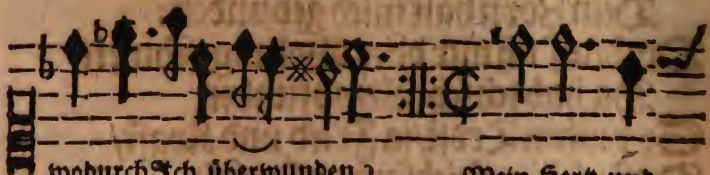 wodurch Ich überwunden?
Mein Hertz und